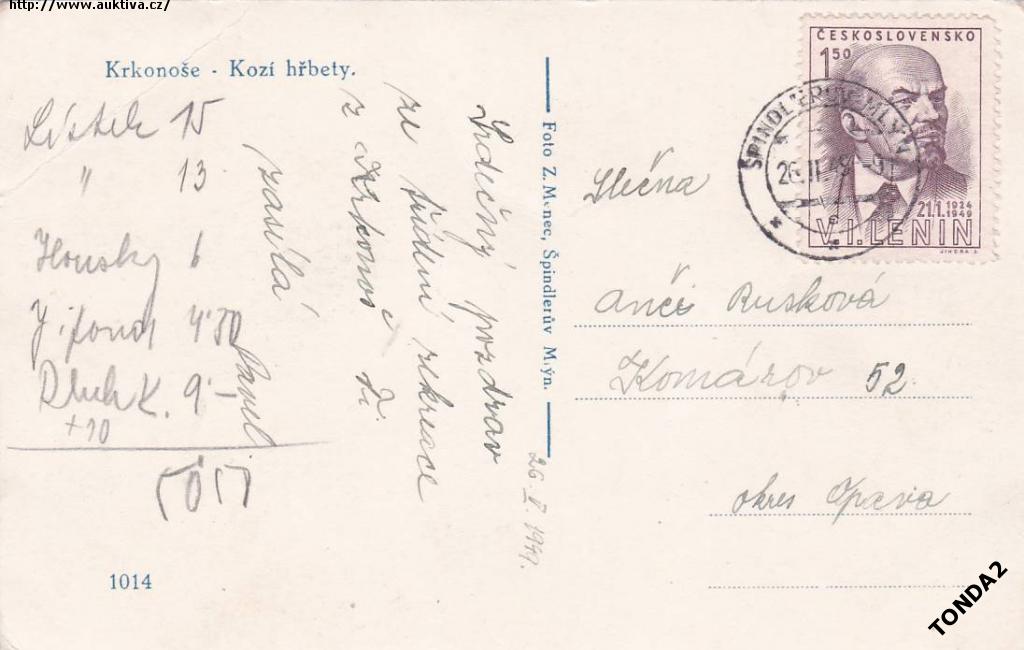 http://www.auktiva.cz/
Krkonoše - Kozí hřbety.
Lístek 15
" 13
Housky 6
4·30
Dluh K. 9·-
+10
Srdečný pozdrav
ze třídenní rekreace
z Krkonoš Ti
zasílá
26. V. 1949.
1014
Foto Z. Menec, Špindlerův Mlýn.
ČESKOSLOVENSKO
1 50
21.1. 1924 1949
V. I. LENIN
ŠPINDLERŮV MLÝN
26. II. 49
Slečna
Anči Rusková
Komárov 52.
okres Opava
TONDA2